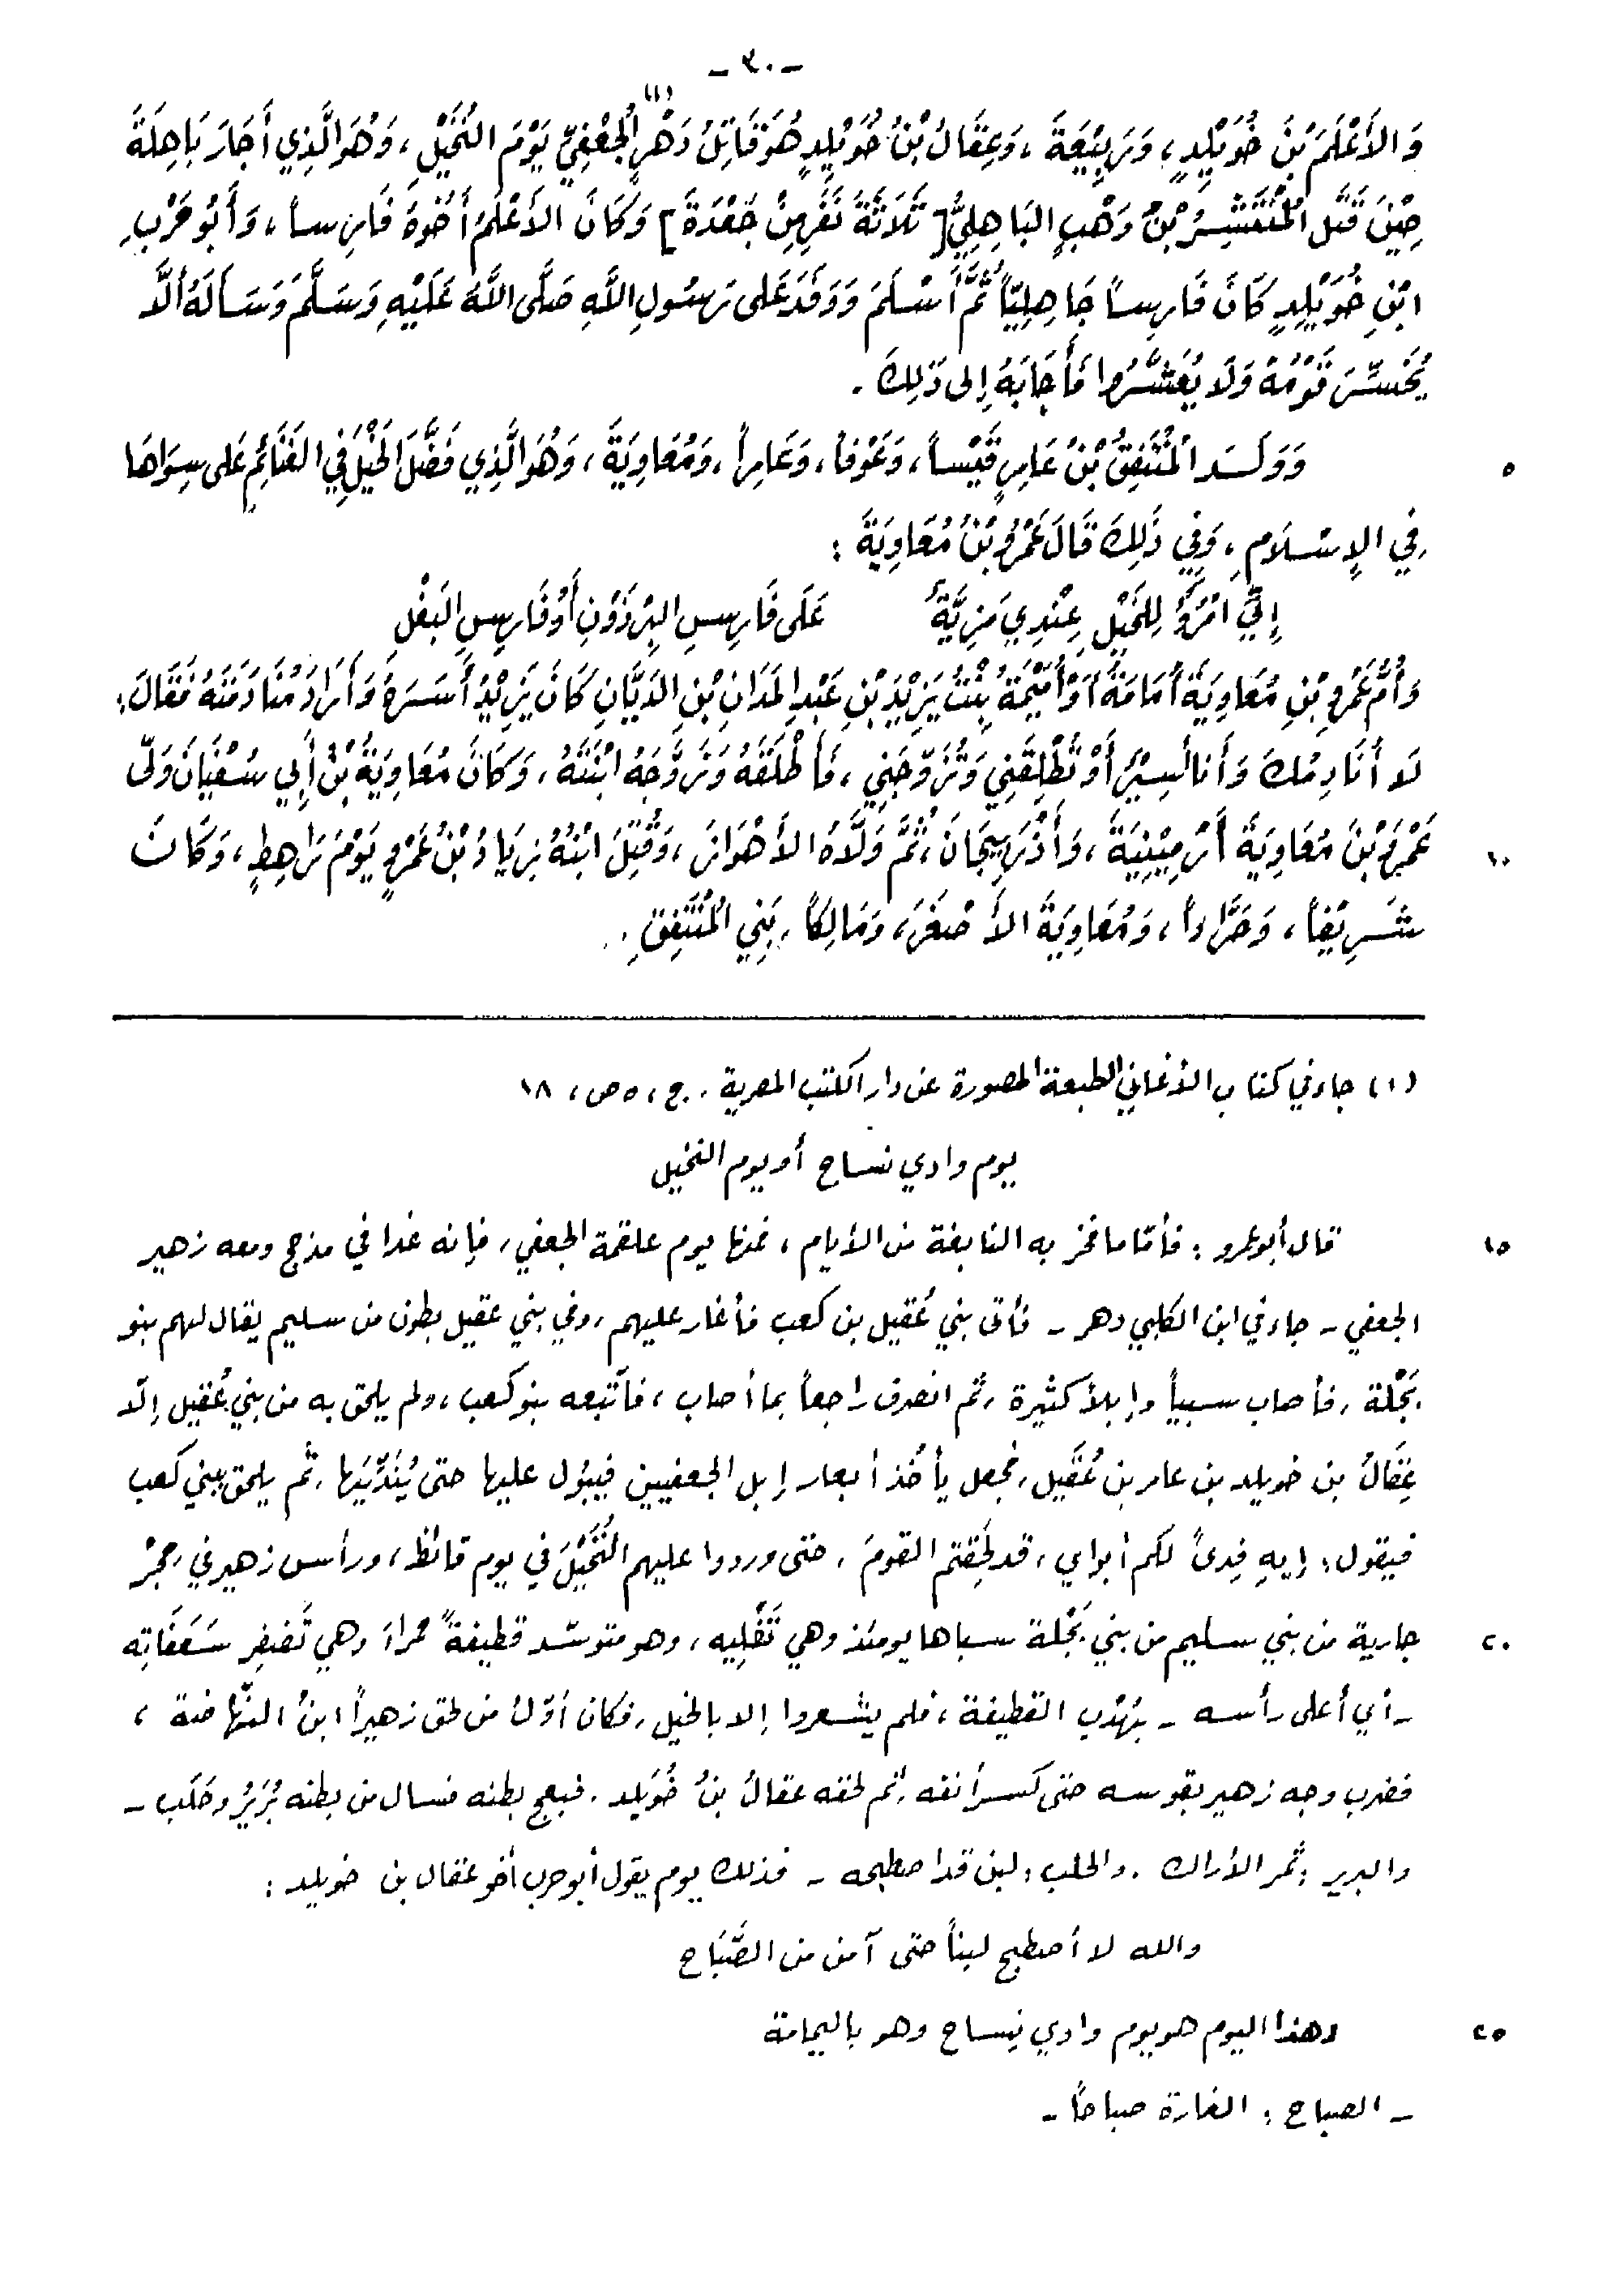 - ٣٠ -
وَالأَعْلَمَ بْنَ خُوَيْلِدٍ، وَرَبِيْعَةَ، وَعِقَالُ بْنُ خُوَيْلِدٍ هُوَ قَاتِلُ دَهْرٍ الجُعْفِيِّ (١) يَوْمَ النُخَيْلِ، وَهُوَ الَّذِي أَجَارَ بَاهِلَةَ
حِيْنَ قَتَلَ المُنْتَشِرُ بْنُ وَهْبٍ البَاهِلِيُّ [ثَلَاثَةَ نَفَرٍ مِنْ جَعْدَةَ] وَكَانَ الأَعْلَمُ أَخُوهُ فَارِساً، وَأَبُو حَرْبِ
ابْنِ خُوَيْلِدٍ كَانَ فَارِساً جَاهِلِيّاً ثُمَّ أَسْلَمَ وَوَفَدَ عَلى رَسُولِ اللَّهِ صَلَّى اللَّهُ عَلَيْهِ وَسَلَّمَ وَسَأَلَهُ أَلَّا
يُحَشِّرَ قَوْمَهُ وَلَا يُعَشَّرُوا فَأَجَابَهُ إِلى ذَلِكَ.
٥ وَوَلَدَ المُنْتَفِقُ بْنُ عَامِرٍ قَيْساً، وَعَوْفاً، وَعَامِراً، وَمُعَاوِيَةَ، وَهُوَ الَّذِي فَضَّلَ الخَيْلَ فِي الغَنَائِمِ عَلى سِوَاهَا
فِي الإِسْلَامِ، وَفِي ذَلِكَ قَالَ عَمْرُو بْنُ مُعَاوِيَةَ:
إِنِّي امْرُؤٌ لِلخَيْلِ عِنْدِي مَزِيَّةٌ عَلَى فَارِسِ البِرْذَوْنِ أَوْ فَارِسِ البَغْلِ
وَأُمُّ عَمْرِو بْنِ مُعَاوِيَةَ أُمَامَةُ أَوْ أُمَيْمَةُ بِنْتُ يَزِيْدَ بْنِ عَبْدِ المَدَانِ بْنِ الدَيَّانِ كَانَ يَزِيْدُ أَسَرَهُ وَأَرَادَ مُنَادَمَتَهُ فَقَالَ:
لَا أُنَادِمُكَ وَأَنَا أَسِيْرٌ أَوْ تُطْلِقَنِي وَتُزَوِّجَنِي، فَأَطْلَقَهُ وَزَوَّجَهُ ابْنَتَهُ، وَكَانَ مُعَاوِيَةُ بْنُ أَبِي سُفْيَانَ وَلَّى
١٠ عَمْرَو بْنَ مُعَاوِيَةَ أَرْمِيْنِيَةَ، وَأَذْرَبِيجَانَ، ثُمَّ وَلَّاهُ الأَهْوَازَ، وَقُتِلَ ابْنُهُ زِيَادُ بْنُ عَمْرٍو يَوْمَ رَاهِطٍ، وَكَانَ
شَرِيْفاً، وَضَرَّاراً، وَمُعَاوِيَةَ الأَصْغَرَ، وَمَالِكاً بَنِي المُنْتَفِقِ.
(١) جاء في كتاب الأغاني الطبعة المصورة عن دار الكتب المصرية. ج، ٥ ص، ١٨
يوم وادي نساح أو يوم النخيل
١٥ قال أبو عمرو: فأمّا ما فخر به النابغة من الأيام، فمنها يوم علقمة الجعفي، فإنه غدا في مذحج ومعه زهير
الجعفي - جاء في ابن الكلبي دهر - فأتى بني عُقيل بن كعب فأغار عليهم، وفي بني عقيل بطون من سليم يقال لهم بنو
بَجْلة، فأصاب سبياً وإبلاً كثيرة، ثم انصرف راجعاً بما أصاب، فاتّبعه بنو كعب، ولم يلحق به من بني عُقيل إلّا
عِقَالُ بن خويلد بن عامر بن عُقَيل، فجعل يأخُذ أبعار إبل الجعفيين فيبُول عليها حتى يُنَدِّيَها، ثم يلحق ببني كعب
فيقول: إيهِ فِدىً لكم أبواي، قد لَحِقتم القومَ، حتى وردوا عليهم النُّخَيْلَ في يوم قائظ، ورأس زهير في حِجْر
٢٠ جارية من بني سليم من بني بَجْلة سباها يومئذ وهي تَفْلِيه، وهو متوسّد قطيفةً حمراءَ وهي تَضفِر سَعَفَاتِه
- أي أعلى رأسه - بهُدْب القطيفة، فلم يشعروا إلا بالخيل، فكان أوّلُ من لحق زهيراً ابنُ النّهاضة،
فضرب وجه زهير بقوسه حتى كسر أنفه، ثم لحقه عقالُ بنُ خُوَيلد، فبعج بطنه فسال من بطنه بُرَيْرُ وحَلَب -
والبرير: ثمر الأراك. والحلب: لبن قد اصطبحه - فذلك يوم يقول أبو حرب أخو عقال بن خويلد:
والله لا أصطبح لبناً حتى آمن من الصَّبَاح
٢٥ وهذا اليوم هو يوم وادي نِساح وهو باليمامة
- الصباح: الغارة صباحاً -